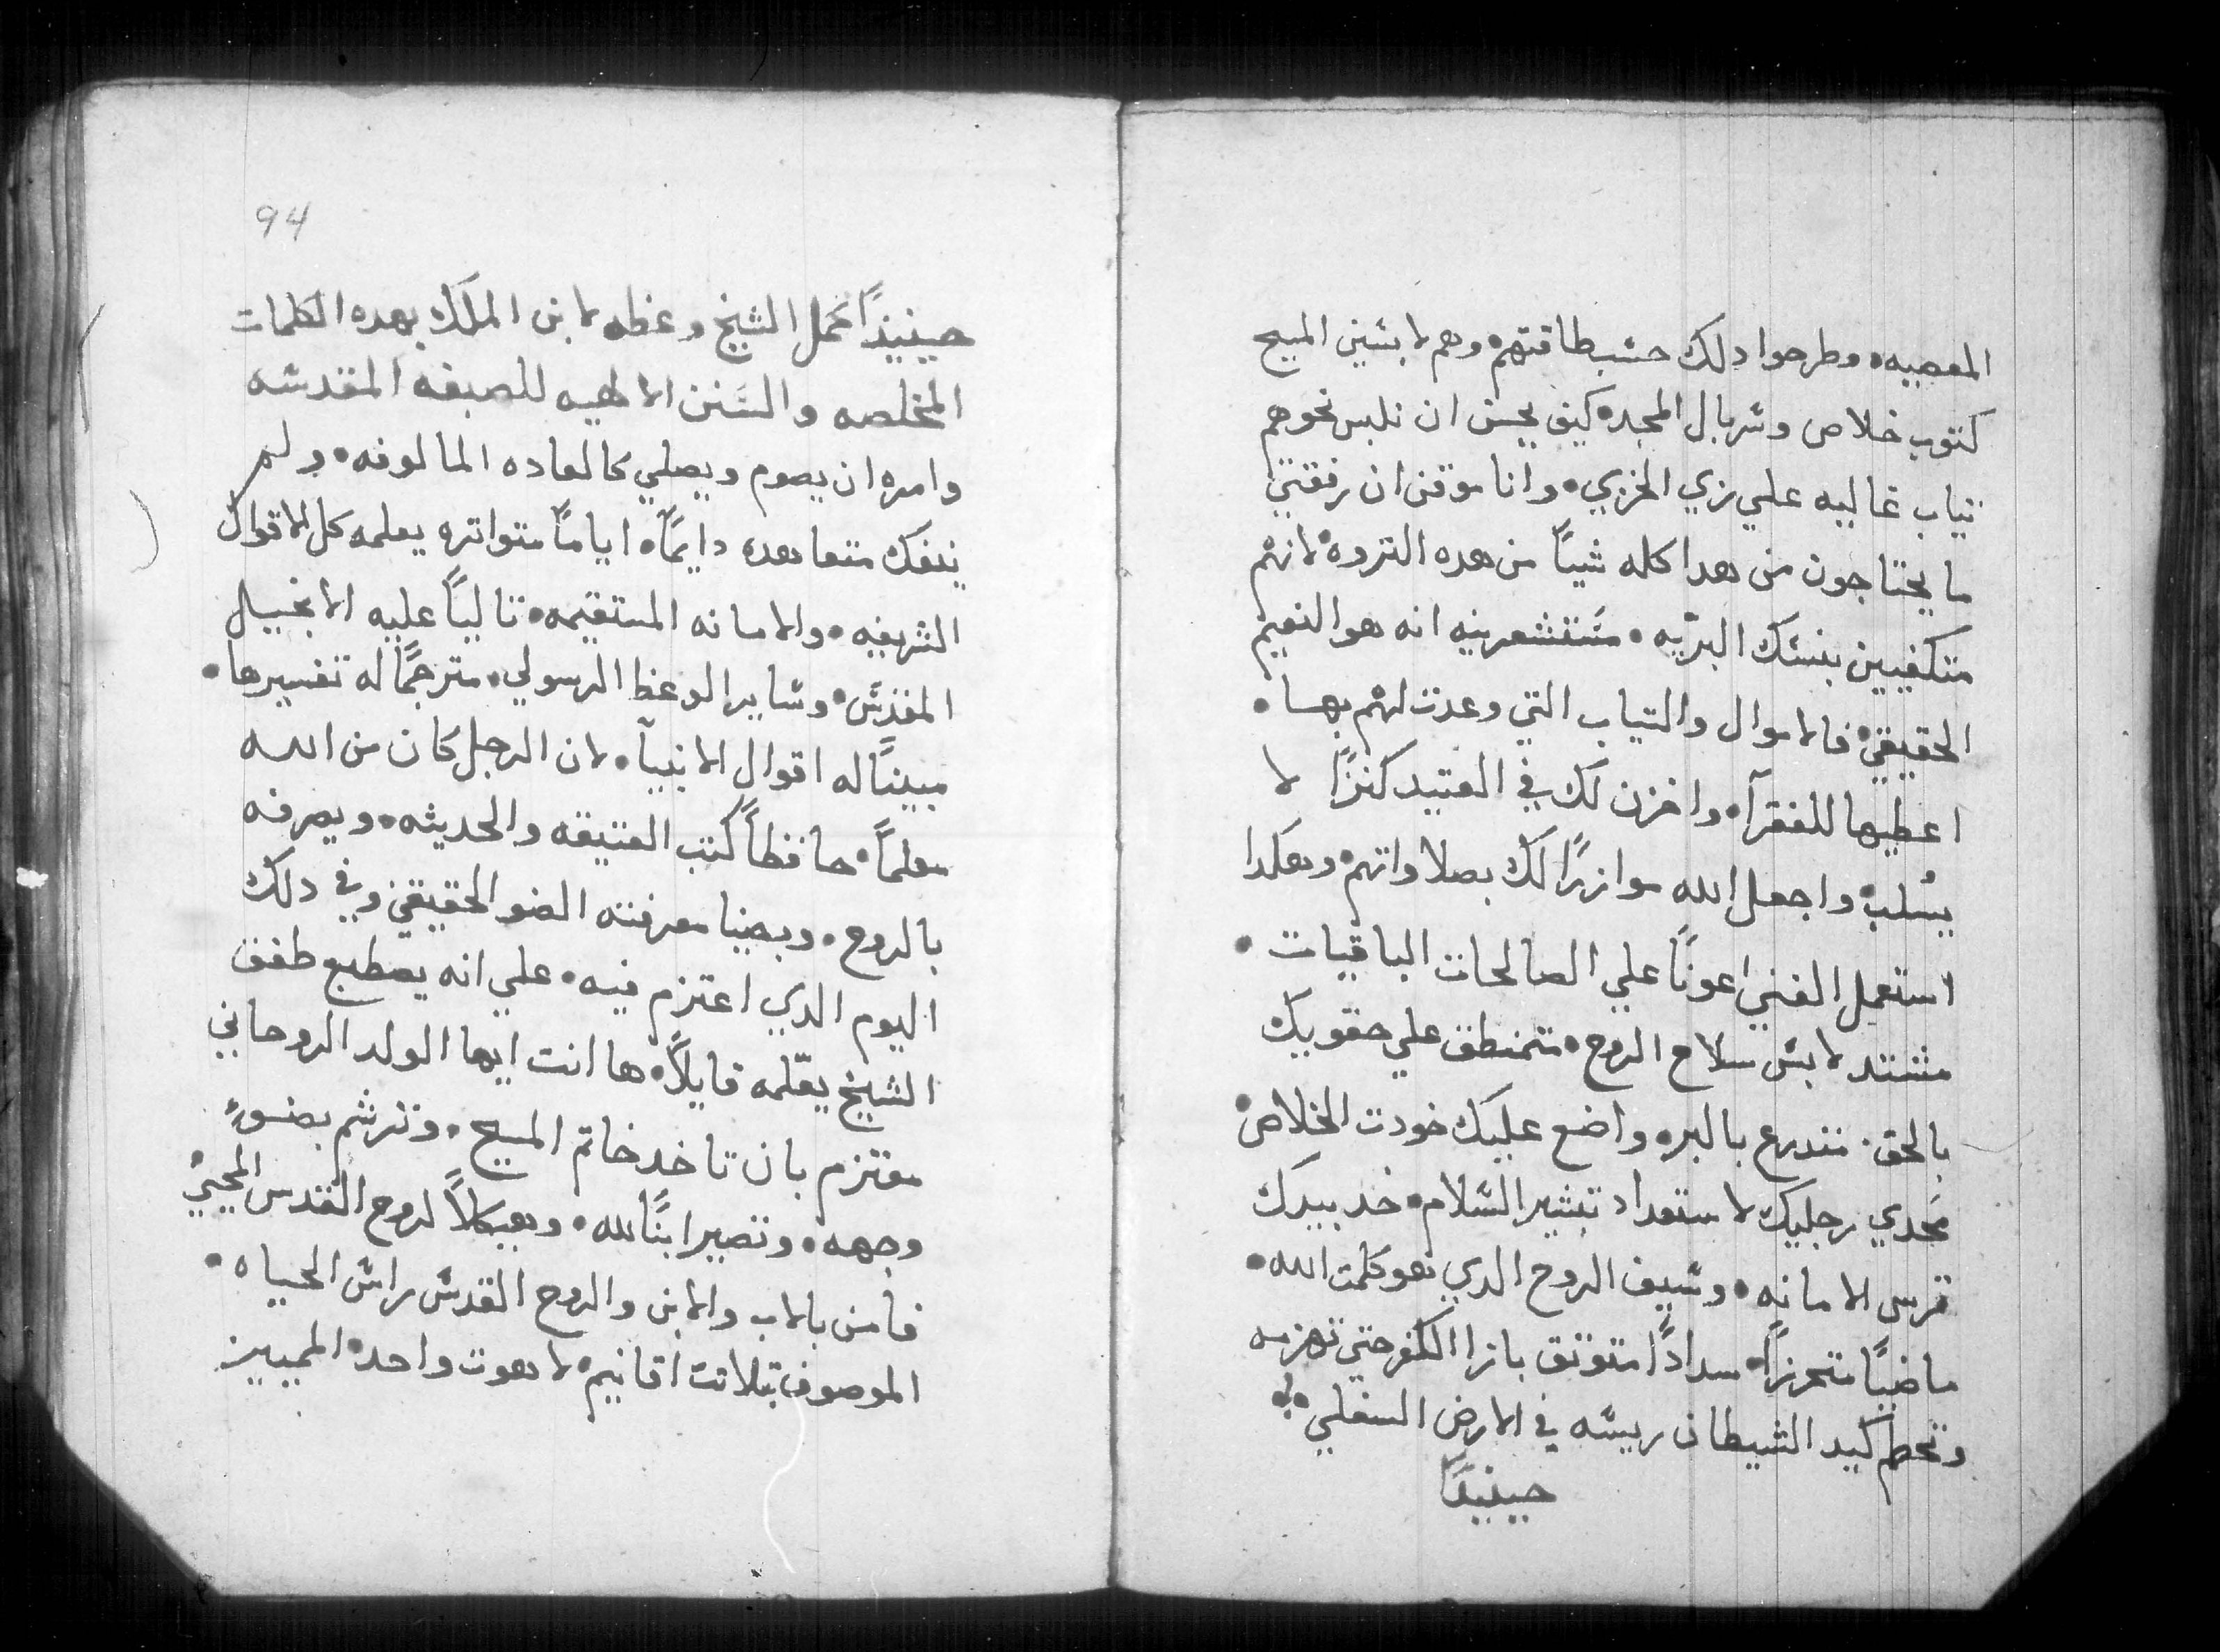 المعصيه • وطرحوا دلك حسَب طاقتهم • وهم لابسَين المسيح
كتوب خلاص وسَربال المجد • كيف يحسن ان نلبس نحوهم
تياب غاليه علي زي الخزي • وانا موقن ان رفقتي
ما يحتاجون من هدا كله شياً من هده التروه • لانهم
متكفيين بنسَك البرّيه • مسَتشعرينه انه هو النعيم
الحقيقي • فالاموال والتياب التي وعدت لهم بها •
اعطيها للفقرآ • واخزن لك في العتيد كنزًا لا
يسُلب • واجعل الله موازرًا لك بصلاواتهم • وهكدا
استعمل الغني اعونًا علي الصالحات الباقيات •
مشتد لابسَ سلاح الروح • متمنطق علي حقويك
بالحق • متدرع بالبر • واضع عليك خودت الخلاص •
محدي رجليك لاستعداد تبشير السَلام • خد بيدك
ترس الامانه • وسَيف الروح الدي هو كلمت الله •
ماضيًا متحرزًا • سدادًا متوتق بازا الكفر حتي تهزمه
وتحطم كيد الشيطان ريسَه في الارض السفلي •
حينيدًا
94
حينيذًا كمل الشيخ وعظه لابن الملك بهده الكلمات
المخلصه والسَنن الالهيه للصبغه المقدسَه
وامره ان يصوم ويصلي كالعاده المالوفه • ولم
ينفك متعاهده دايمًا • اياماً متواتره يعلمه كل الاقوال
الشريفيه • والامانه المستقيمه • تالياً عليه الانجيل
المقدسَ • وسَاير الوعظ الرسولي • مترجمًا له تفسيرها •
مبينًا له اقوال الانبيآ • لان الرجل كان من الله
معلمًا • حافظاً كتب العتيقه والحديثه • ويعرفه
بالروح • وبضيا معرفته الضو الحقيقي • وفي دلك
اليوم الدي اعتزم فيه • علي انه يصطبغ طفق
الشيخ يعّلمه قايلًا • ها انت ايها الولد الروحاني
معتزم بان تاخد خاتم المسيح • وترشم بضوء
وجهه • وتصير ابنًا لله • وهيكلاً لروح القدس المحيي
فامن بالاب والابن والروح القدسَ راسَ الحياه •
الموصوف بتلاتت اقانيم • لاهوت واحد • المميز